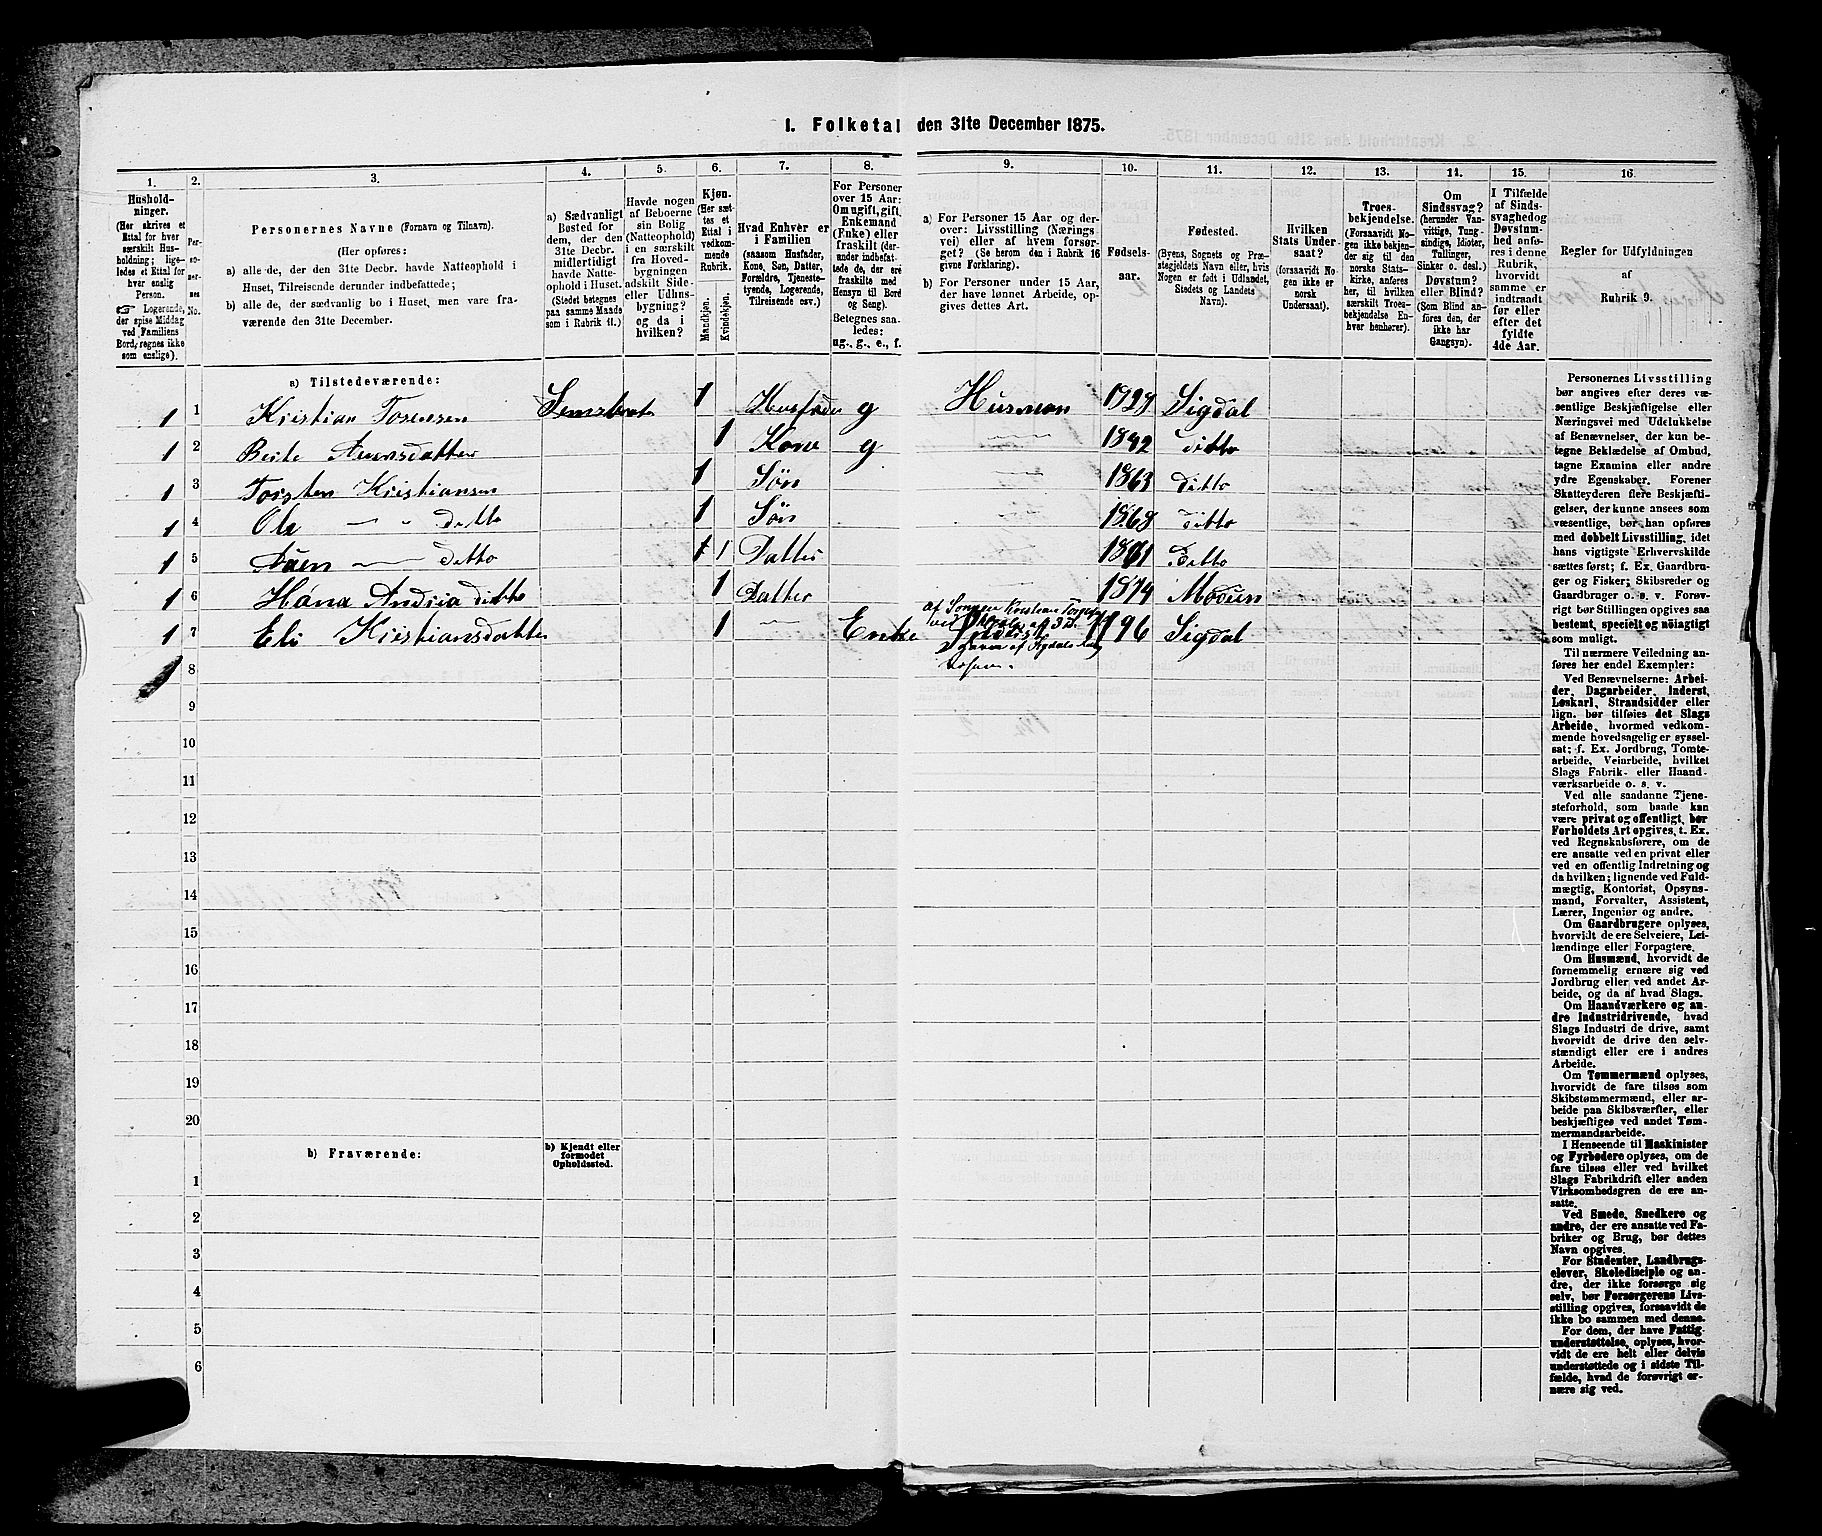 1. Folketal den 31te December 1875.
1.
Hushold-
ninger.
(Her skrives et
Ettal for hver
særskilt Hus-
holdning; lige-
ledes et Ettal for
hver enslig
Person.
☞ Logerende,
der spise Middag
ved Familiens
Bord, regnes ikke
som enslige).
2.
Per-
so-
ner-
nes
No.
3.
Personernes Navne (Fornavn og Tilnavn).
(Her opføres:
a) alle de, der den 31te Decbr. havde Natteophold i
Huset, Tilreisende derunder indbefattede;
b) alle de, der sædvanlig bo i Huset, men vare fra-
værende den 31te December.
4.
a) Sædvanligt
Bosted for
dem, der den
31te Decbr.
midlertidigt
havde Natte-
ophold i Huset.
(Stedet betegnes
paa samme Maade
som i Rubrik 11.)
5.
Havde nogen
af Beboerne
sin Bolig
(Natteophold)
i en særskilt
fra Hoved-
bygningen
adskilt Side-
eller Udhus-
bygning?
og da i
hvilken?
6.
Kjøn.
(Her sæt-
tes et
Ettal i
vedkom-
mende
Rubrik.
Mandkjøn.
Kvindekjøn.
7.
Hvad Enhver er
i Familien
(saasom Husfader,
Kone, Søn, Datter,
Forældre, Tjeneste-
tyende, Logerende,
Tilreisende osv.)
8.
For Personer
over 15 Aar:
Om ugift, gift,
Enkemand
(Enke) eller
fraskilt (der-
under indbefat-
tede de, der ere
fraskilte med
Hensyn til Bord
og Seng.)
Betegnes saa-
ledes:
ug., g., e., f.
9.
a) For Personer 15 Aar og der-
over: Livsstilling (Nærings-
vei) eller af hvem forsør-
get? (Se herom den i Rubrik 16
givne Forklaring).
b) For Personer under 15 Aar,
der have lønnet Arbeide, op-
gives dettes Art.
10.
Fødsels-
aar.
11.
Fødested.
(Byens, Sognets og Præ-
stegjeldets Navn eller, hvis
Nogen er født i Udlandet,
Stedets og Landets
Navn).
12.
Hvilken
Stats Under-
saat?
(forsaavidt No-
gen ikke er
norsk
Undersaat).
13.
Troes-
bekjendelse.
(Forsaavidt No-
gen ikke bekjen-
der sig til den
norske Stats-
kirke, anføres
her, til hvilken
særskilt Troes-
bekjendelse En-
hver henhører).
14.
Om
Sindssvag?
(herunder Van-
vittige, Tung-
sindige, Idioter,
Tullinger,
Sinker o. desl.)
Døvstum?
eller Blind?
(Som Blind an-
føres den, der
ikke har
Gangsyn).
15.
I Tilfælde
af Sinds-
svaghed og
Døvstum-
hed anfø-
res i denne
Rubrik,
hvorvidt
samme er
indtraadt
før eller
efter det
fyldte
4de Aar.
16.
Regler for Udfyldningen
af
Rubrik 9.
a) Tilstedeværende:
1 1 Kristian Torensen 1 Husfader g Husman 1828 Sigdal
1 2 Berte 1 Kone g 1842 Ditto
1 3 Torsten Kristiansen 1 Søn 1863 ditto
1 4 Ole - ditto 1 Søn 1868 ditto
1 5 - ditto 1 Datter ditto
1 6 Andrea ditto 1 Datter 1874 Modum
1 7 Eli Kristiansdatter 1 Enke 1796 Sigdal
8
9
10
11
12
13
14
15
16
17
18
19
20
b) Fraværende:
b) Kjendt eller
formodet
Opholdssted.
1
2
3
4
5
6
Personernes Livsstilling
bør angives efter deres væ-
sentlige Beskjæftigelse eller
Næringsvei med Udelukkelse
af Benævnelser, der kun be-
tegne Beklædelse af Ombud,
tagne Examina eller andre
ydre Egenskaber. Forener
Skatteyderen flere Beskjæfti-
gelser, der kunne ansees som
væsentlige, bør han opføres
med dobbelt Livsstilling, idet
hans vigtigste Erhvervskilde
sættes først; f. Ex. Gaardbru-
ger og Fisker; Skibsreder og
Gaardbruger o. s. v. Forøv-
rigt bør Stillingen opgives saa
bestemt, specielt og nøiagtigt
som muligt.
Til nærmere Veiledning an-
føres her endel Exempler:
Ved Benævnelserne: Arbei-
der, Dagarbeider, Inderst,
Løskarl, Strandsidder eller
lign. bør tilføies det Slags
Arbeide, hvormed vedkom-
mende hovedsagelig er syssel-
sat; f. Ex. Jordbrug, Tomte-
arbeide, Veiarbeide, hvilket
Slags Fabrik- eller Haand-
værksarbeide o. s. v.
Ved alle saadanne Tjene-
steforhold, som baade kan
være privat og offentligt, bør
Forholdets Art opgives, t. Ex.
ved Regnskabsførere, om de
ere ansatte ved en privat eller
ved en offentlig Indretning og
da hvilken; lignende ved Fuld-
mægtig, Kontorist, Opsyns-
mand, Forvalter, Assistent,
Lærer, Ingeniør og andre.
Om Gaardbrugere oplyses,
hvorvidt de ere Selveiere, Lei-
lændinge eller Forpagtere.
Om Husmænd, hvorvidt de
fornemmelig ernære sig ved
Jordbrug eller ved andet Ar-
beide, og da af hvad Slags.
Om Haandværkere og an-
dre Industridrivende, hvad
Slags Industri de drive, samt
hvorvidt de drive den selv-
stændigt eller ere i andres
Arbeide.
Om Tømmermænd oplyses,
hvorvidt de fare tilsøs som
Skibstømmermænd, eller ar-
beide paa Skibsværfter, eller
beskjæftiges ved andet Tøm-
mermandsarbeide.
I Henseende til Maskinister
og Fyrbødere oplyses, om de
fare tilsøs eller ved hvilket
Slags Fabrikdrift eller anden
Virksombedsgren de ere an-
satte.
Ved Smede, Snedkere og
andre, der ere ansatte ved Fa-
briker og Brug, bør dettes
Navn opgives.
For Studenter, Landbrugs-
elever, Skoledisciple og an-
dre, der ikke forsørge sig
selv, bør Forsørgerens Livs-
stilling opgives, forsaavidt de
ikke bo sammen med denne.
For dem, der have Fattig-
understøttelse, oplyses, hvor-
vidt de ere helt eller delvis
understøttede og i sidste Til-
fælde, hvad de forøvrigt er-
nære sig ved.